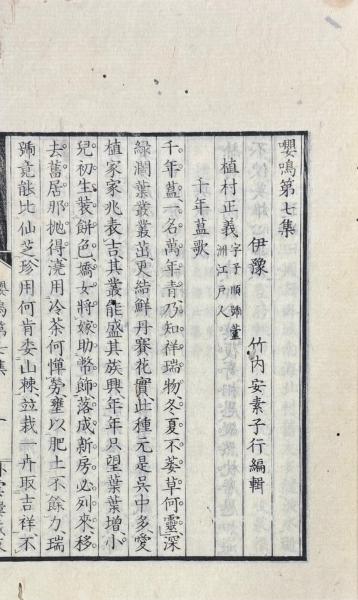 嚶鳴第七集
伊豫 竹内安素子行編輯
植村正義 字子順號蘆洲江戸人
千年蒀歌
千年蒀一名萬年青乃知祥瑞物冬夏不萎草何靈深
綠濶葉叢叢茁更結鮮丹賽花實此種元是吳中多愛
植家家兆衣吉其叢能盛其族興年年只望葉葉增小
兒初生裝餅色嬌女將嫁助幣飾落成新房必列來移
去舊居那抛得澆用冷茶何憚勞壅以肥土不餘力瑞
號竟能比仙芝珍用何肯委山棘竝栽一卉取吉祥不
嚶鳴第七集 一